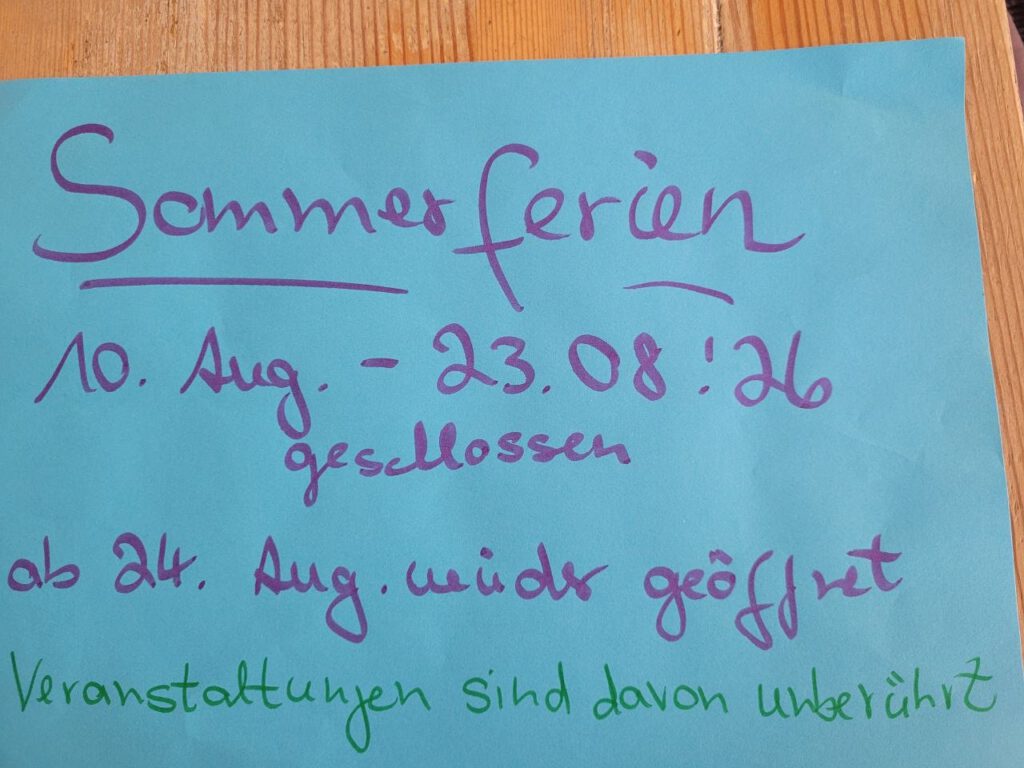 Sommerferien
10. Aug. - 23.08!26
geschlossen
ab 24. Aug. wieder geöffnet
Veranstaltungen sind davon unberührt